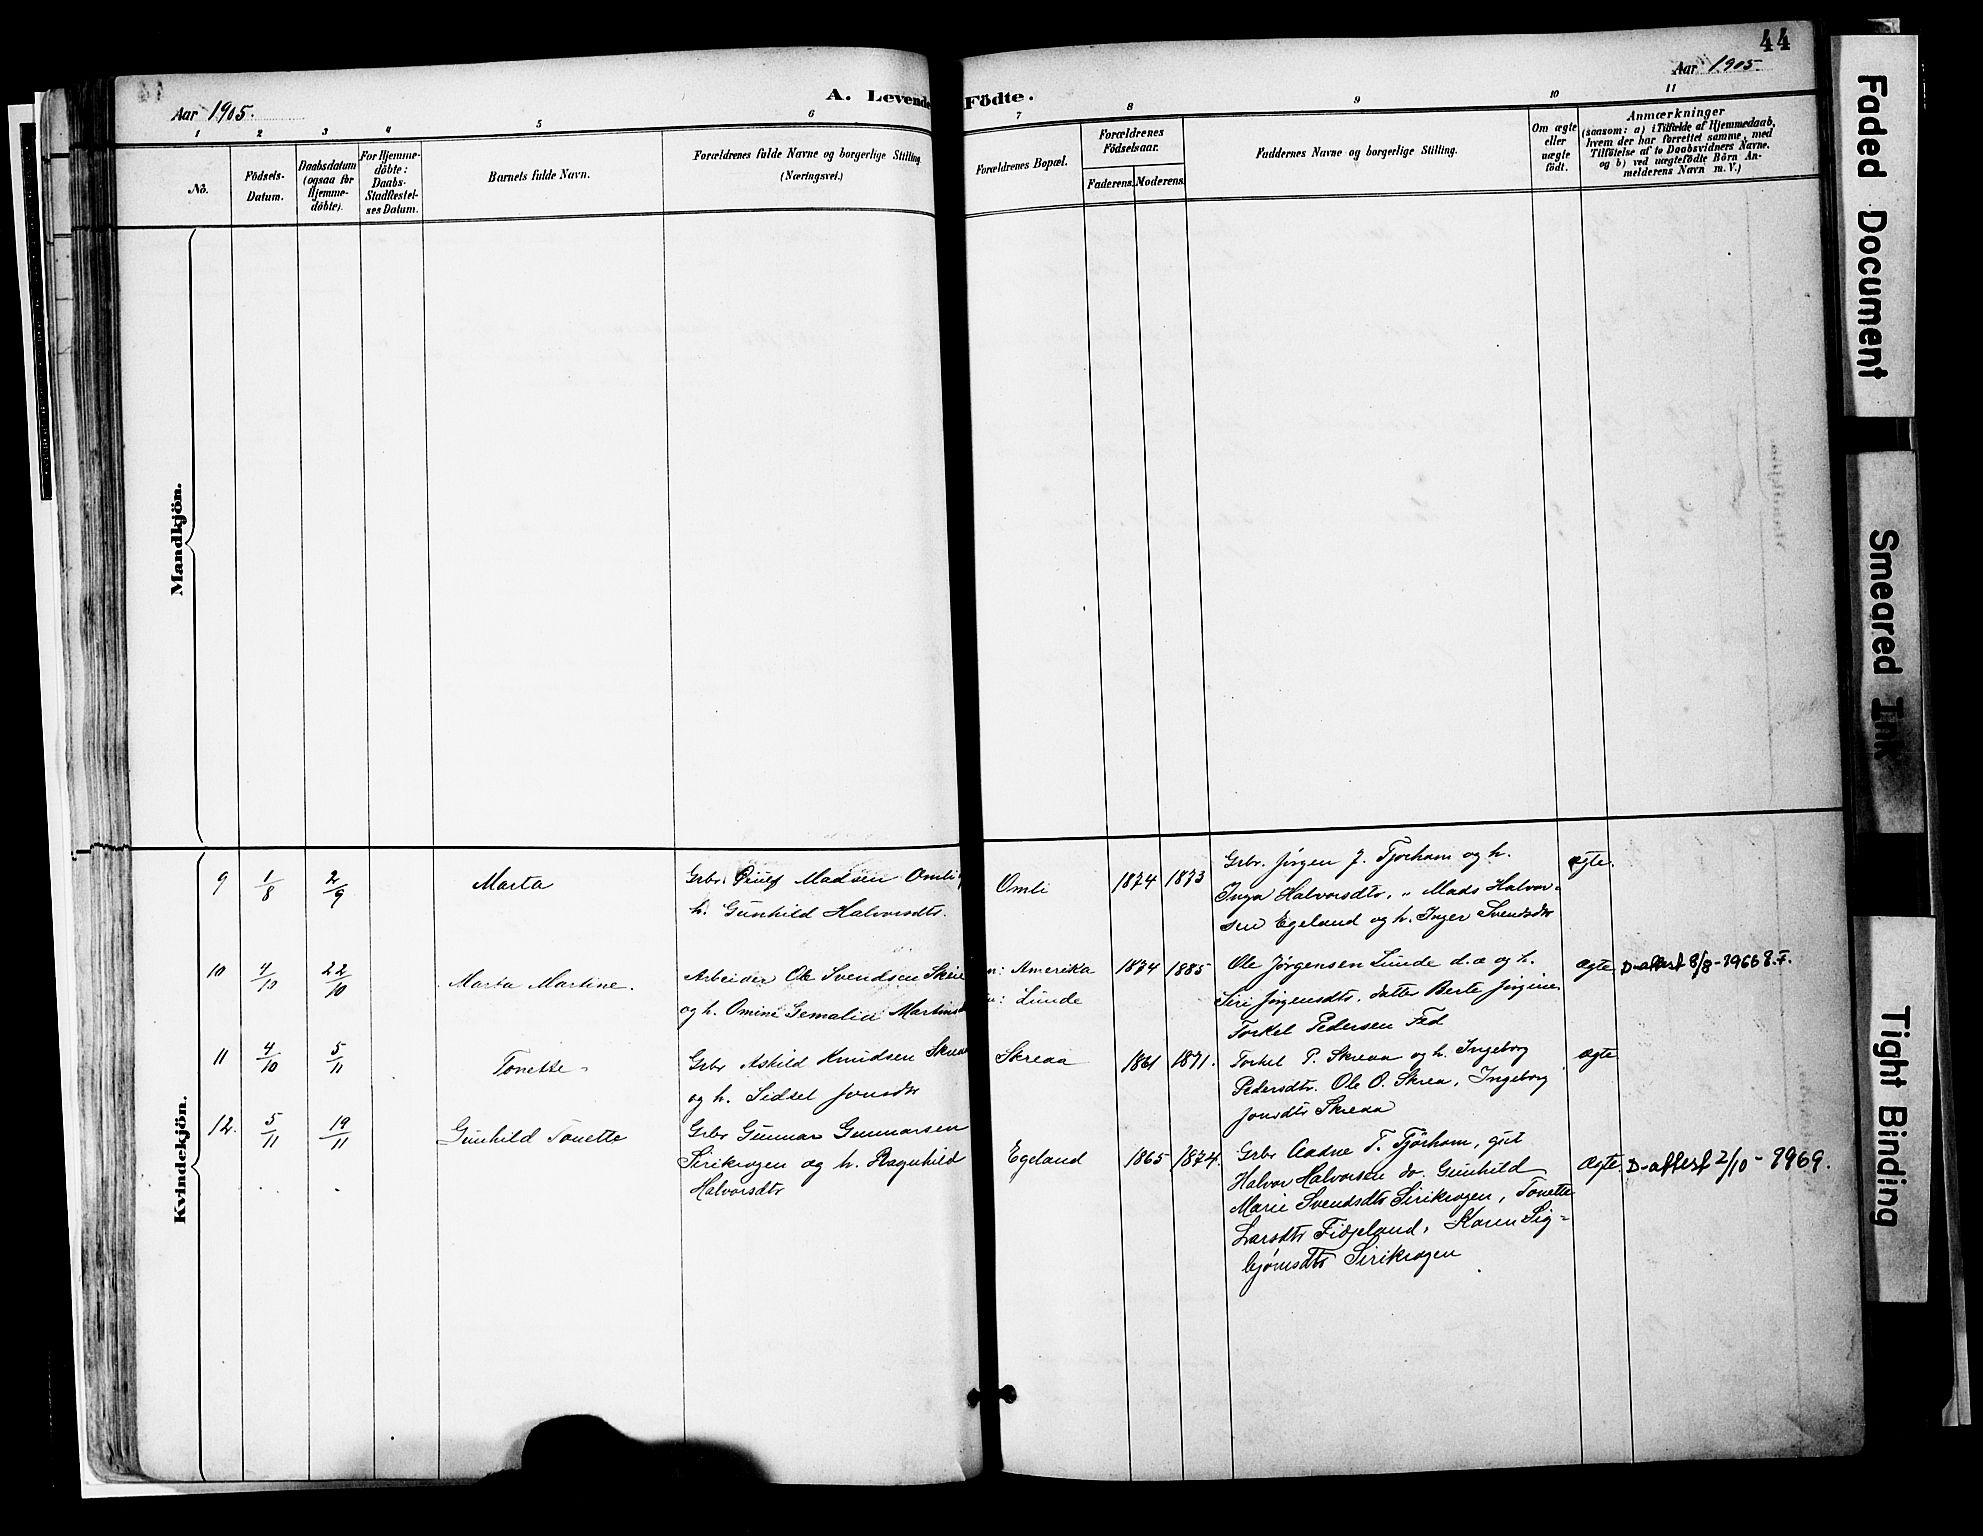 44
Aar 1905.
Aar 1905.
A. Levende Födte.
1 2 3 4 5 6 7 8 9 10 11
No.
Födsels-
Datum.
Daabsdatum
(ogsaa for
Hjemme-
döbte).
For Hjemme-
döbte:
Daabs-
Stadfæstel-
ses Datum.
Barnets fulde Navn.
Forældrenes fulde Navne og borgerlige Stilling.
(Næringsvei.)
Forældrenes Bopæl.
Forældrenes
Födselsaar.
Faderens. Moderens.
Faddernes Navne og borgerlige Stilling.
Om ægte
eller
uægte
födt.
Anmærkninger
(saasom: a) i Tilfælde af Hjemmedaab,
hvem der har forrettet samme, med
Tilföielse af to Daabsvidners Navne,
og b) ved uægtefödte Börn An-
melderens Navn m. V.)
Mandkjön.
Kvindekjön.
9 1/8 2/9 Marta
Grbr. Madsen Omli
h. Gunhild Halvorsdtr.
Omli 1874 1873
Grbr. Jørgen J. Tjorham og h.
Inga Halvorsdtr, " Mads Halvor-
sen Egeland og h. Inger Svendsdtr
ægte.
10 4/10 22/10 Marta Martine.
Arbeider Ole Svendsen
og h. Omine Martins
n: Amerika
: Lunde
1874 1885
Ole Jørgensen Lunde d.æ og h.
Siri Jørgensdtr. datter Berte Jørgine
Torkel Pedersen Fed
ægte D-attest 8/8-1966
11 4/10 5/11 Tonette
Grbr Askild Knudsen Skreaa
og h. Sidsel Jonsdtr
Skreaa 1861 1871.
Torkel P. Skreaa og h. Ingeborg
Pedersdtr. Ole O. Skrea, Ingeborg
Jonsdtr Skreaa
ægte
12. 5/11 19/11 Gunhild Tonette
Grbr Gunnar Gunnarsen
Sirikrogen og h. Ragnhild
Halvorsdtr
Egeland 1865 1874.
Grbr Aadne T. Tjörhom, gut
Halvor Halvorsen do. Gunhild
Marie Svendsdtr Sirikrogen, Tonette
Larsdtr Fidjeland, Karen Sig-
bjørnsdtr Sirikrogen
Ægte. D-attest 2/10-1969.
Faded Document
Smeared Ink
Tight Binding